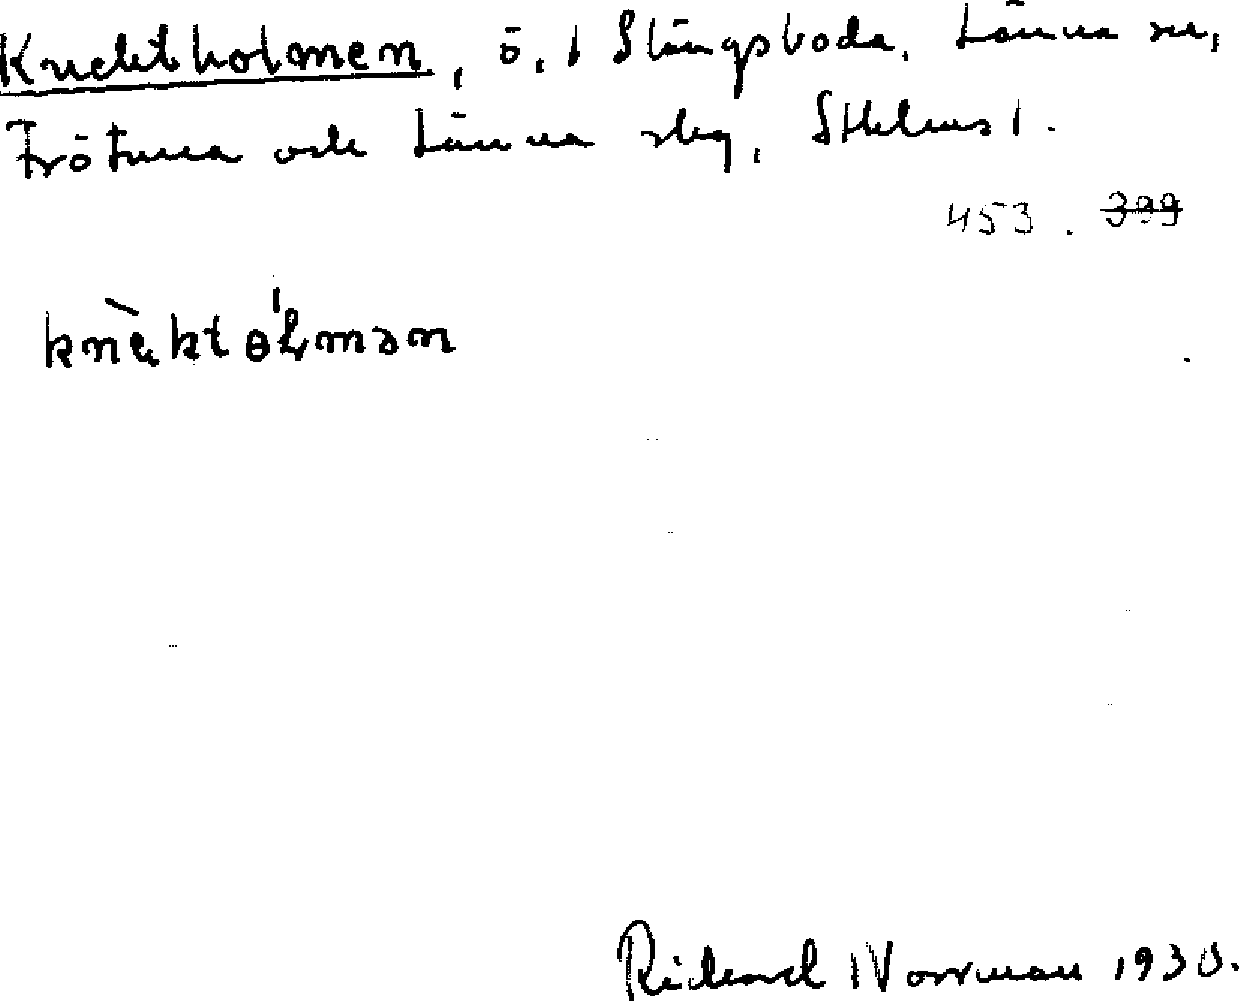 Knektholmen, ö, i Stångsboda, Länna sn,
Frötuna och Länna skg, Sthlms l.
453. 399
knèktólmən
Rickard Norrman 1930.